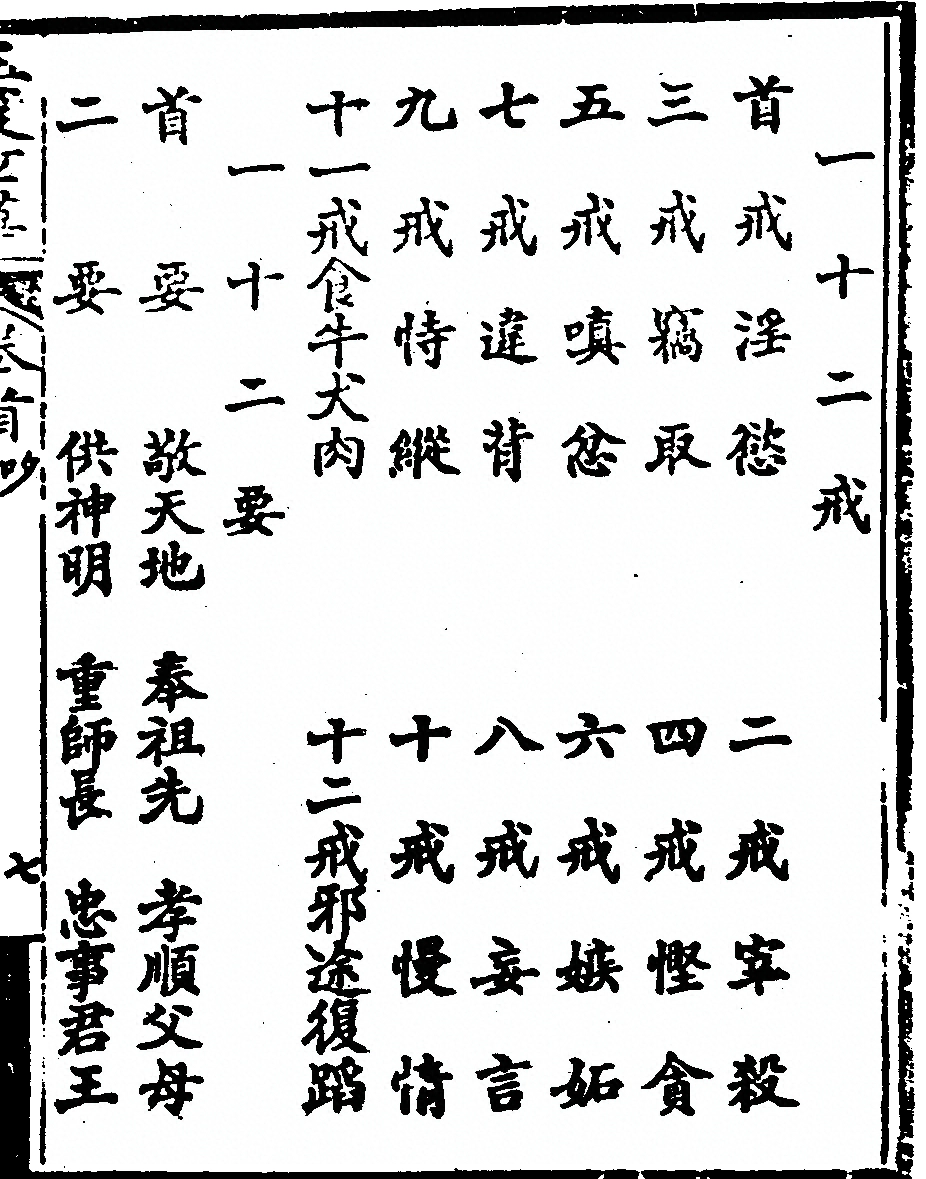 一十二戒
首戒淫慾　二戒宰殺
三戒竊取　四戒慳貪
五戒嗔忿　六戒嫉妬
七戒違背　八戒妄言
九戒恃縱　十戒慢惰
十一戒食牛犬肉　十二戒邪途復蹈
一十二要
首要　敬天地　奉祖先　孝順父母
二要　供神明　重師長　忠事君王
卷首
七